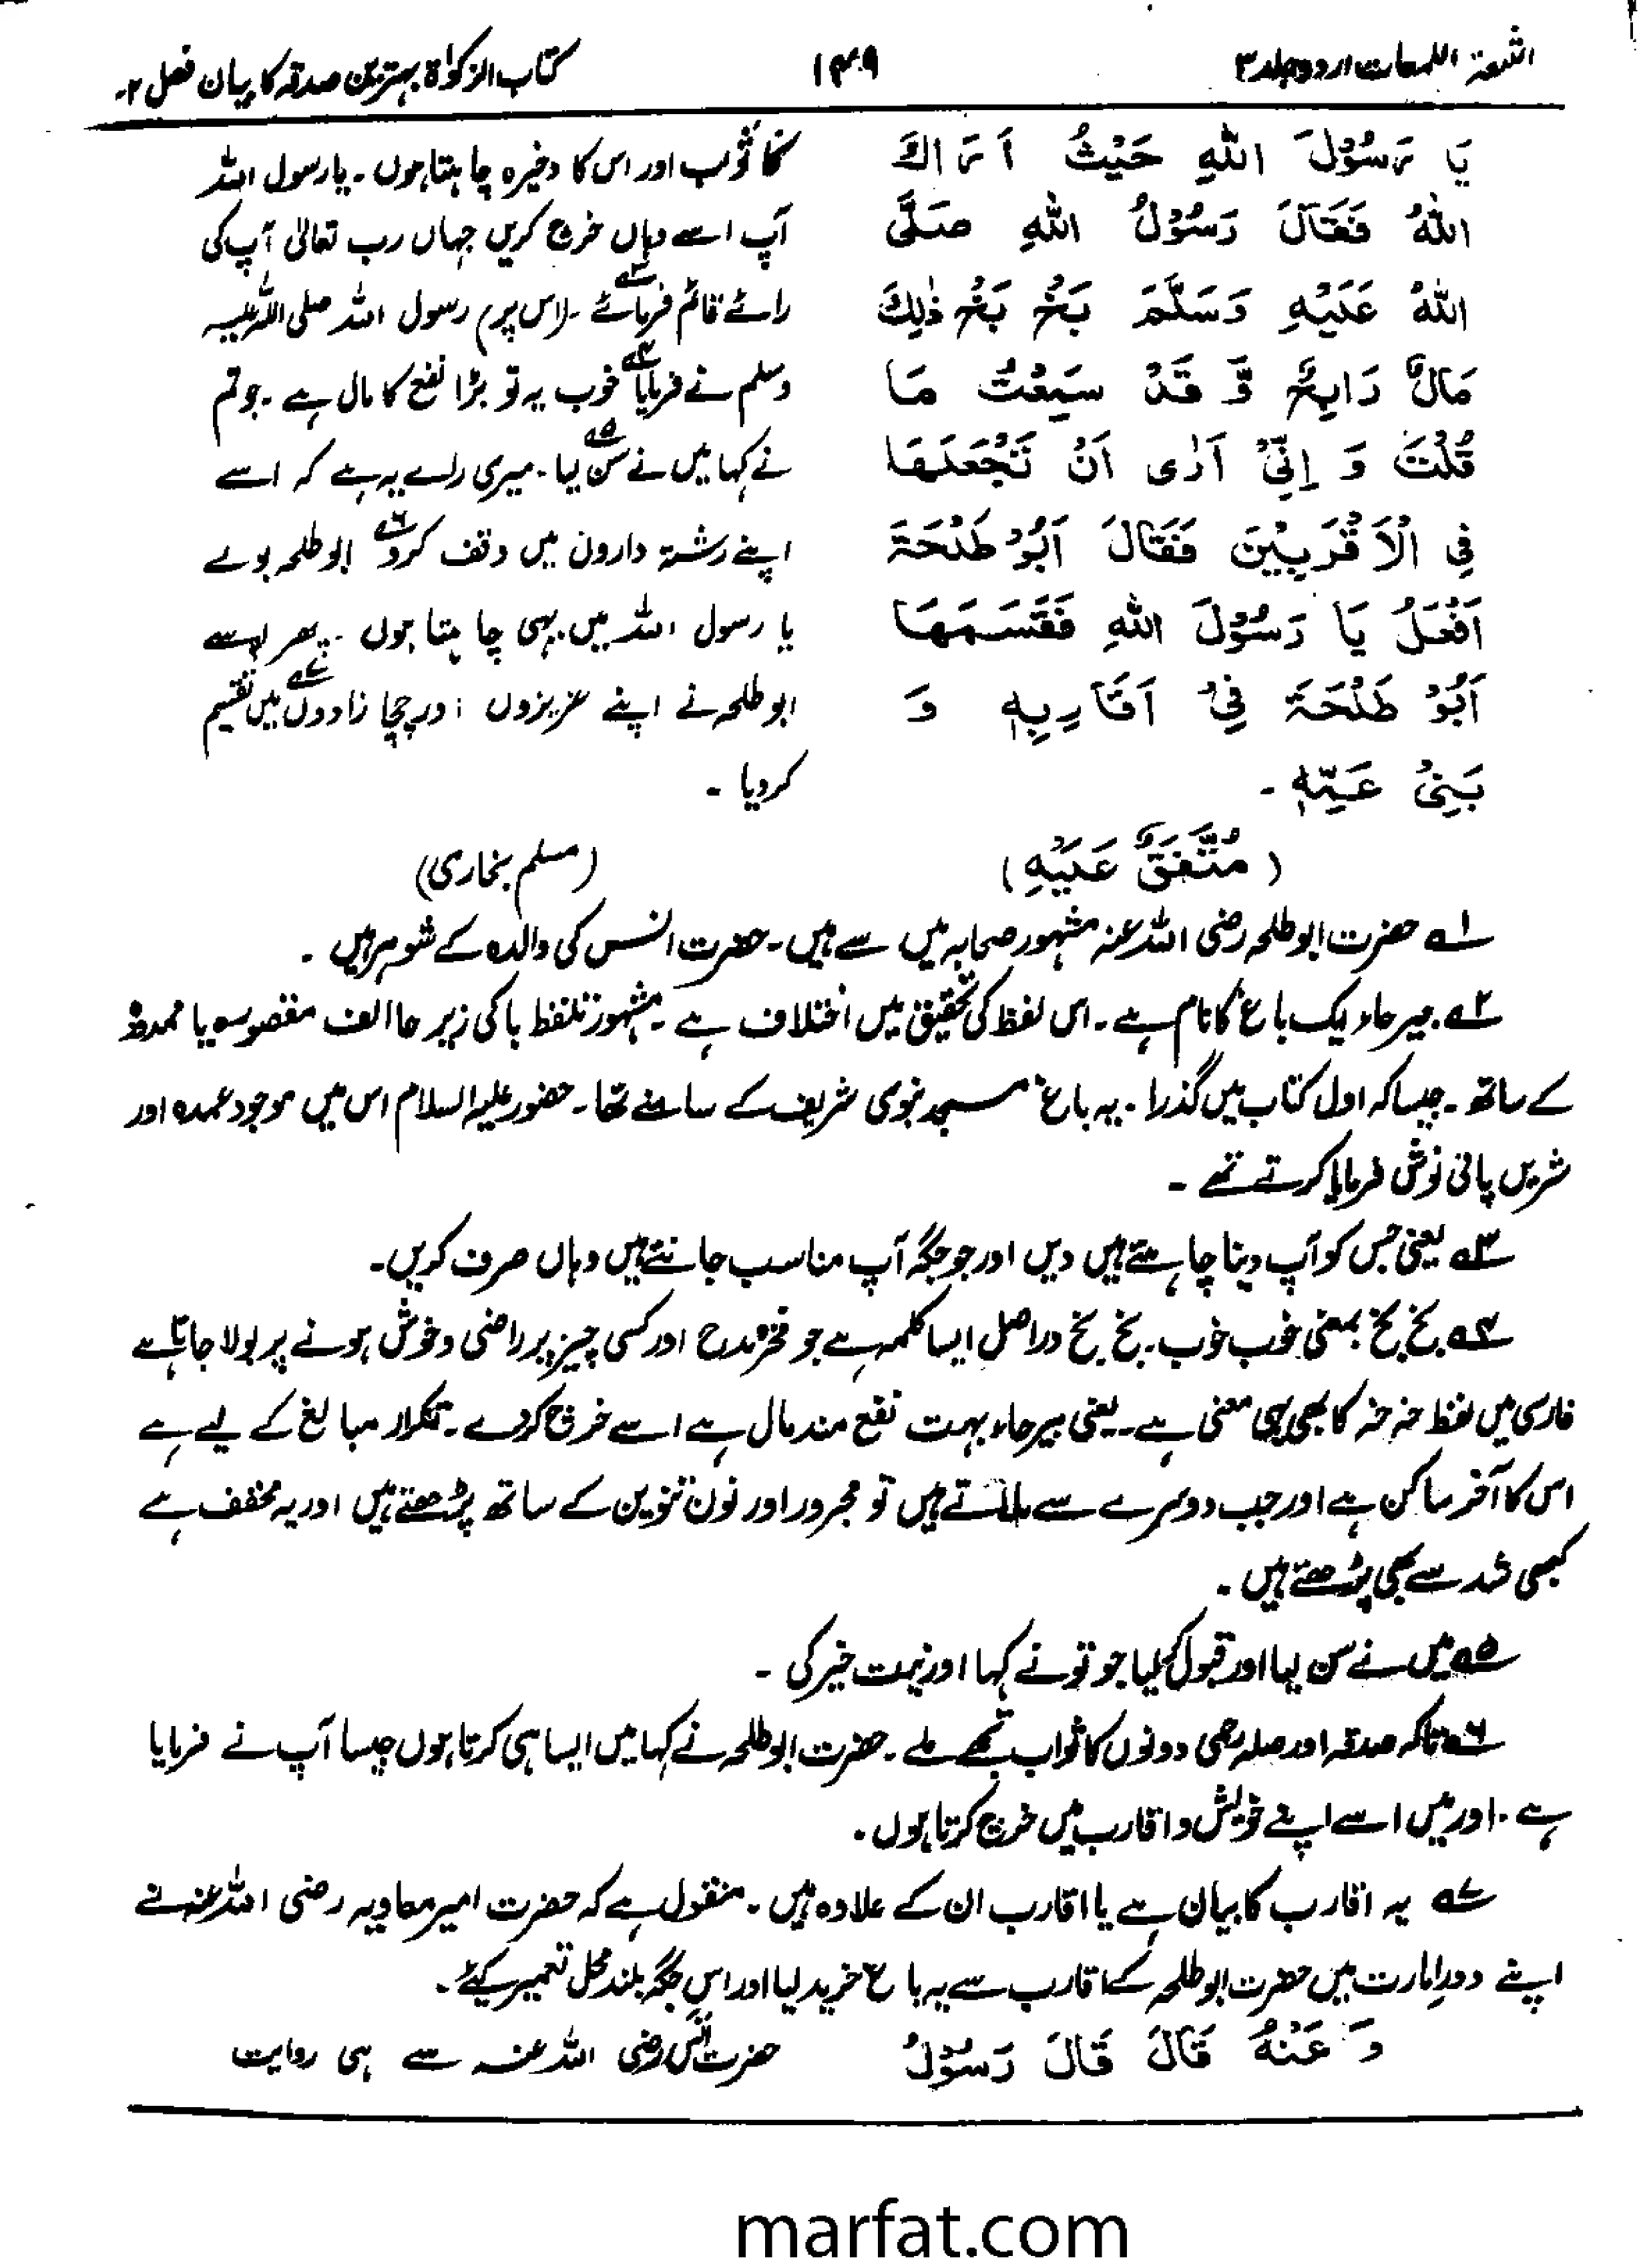 اشعۃ اللمعات اردو جلد ۳
۱۴۹
کتاب الزکواۃ بہترین صدقہ کا بیان فصل ۲۔
یَا رَسُوْلَ اللّٰهِ حَیْثُ اَرَاكَ
اللّٰهُ فَقَالَ رَسُوْلُ اللّٰهِ صَلَّی
اللّٰهُ عَلَیْهِ وَسَلَّمَ بَخْ بَخْ ذٰلِكَ
مَالٌ رَابِحٌ وَّ قَدْ سَمِعْتُ مَا
قُلْتَ وَ اِنِّیْ اَرٰی اَنْ تَجْعَلَهَا
فِی الْاَقْرَبِیْنَ فَقَالَ اَبُوْ طَلْحَةَ
اَفْعَلُ یَا رَسُوْلَ اللّٰهِ فَقَسَمَهَا
اَبُوْ طَلْحَةَ فِیْ اَقَارِبِهٖ وَ
بَنِیْ عَمِّهٖ ۔
(مُتَّفَقٌ عَلَیْهِ)
کا ثواب اور اس کا ذخیرہ چاہتا ہوں ۔ یا رسول اللہ
آپ اسے وہاں خرچ کریں جہاں رب تعالیٰ آپ کی
رائے قائم فرمائے ۳؎ ۔ (اس پر) رسول اللہ صلی اللہ علیہ
وسلم نے فرمایا ۴؎ خوب یہ تو بڑا نفع کا مال ہے ۔ جو تم
نے کہا میں نے سن لیا ۵؎ ۔ میری رائے یہ ہے کہ اسے
اپنے رشتہ دارون میں وقف کردو ۶؎ ابو طلحہ بولے
یا رسول اللہ میں یہی چاہتا ہوں ۔ پھر اسے
ابو طلحہ نے اپنے عزیزوں اور چچا زادوں ۷؎ میں تقسیم
کردیا ۔
(مسلم بخاری)
۱؎ حضرت ابو طلحہ رضی اللہ عنہ مشہور صحابہ میں سے ہیں ۔ حضرت انس کی والدہ کے شوہر ہیں ۔
۲؎ بیرحاء ایک باغ کا نام ہے ۔ اس لفظ کی تحقیق میں اختلاف ہے ۔ مشہور تلفظ با کی زیر حا الف مقصورہ یا ممدودہ
کے ساتھ ۔ جیسا کہ اول کتاب میں گذرا ۔ یہ باغ مسجد نبوی شریف کے سامنے تھا ۔ حضور علیہ السلام اس میں موجود عمدہ اور
شریں پانی نوش فرمایا کرتے تھے ۔
۳؎ یعنی جس کو آپ دینا چاہتے ہیں دیں اور جو جگہ آپ مناسب جانتے ہیں وہاں صرف کریں ۔
۴؎ بخ بخ بمعنی خوب خوب ۔ بخ بخ دراصل ایسا کلمہ ہے جو فخر و مدح اور کسی چیز پر راضی و خوش ہونے پر بولا جاتا ہے
فارسی میں لفظ خہ خہ کا بھی یہی معنی ہے ۔ یعنی بیرحاء بہت نفع مند مال ہے اسے خرچ کردے ۔ تکرار مبالغ کے لیے ہے
اس کا آخر ساکن ہے اور جب دوسرے سے ملاتے ہیں تو مجرور اور نون تنوین کے ساتھ پڑھتے ہیں اور یہ مخفف ہے
کبھی شد سے بھی پڑھتے ہیں ۔
۵؎ میں نے سن لیا اور قبول کر لیا جو تو نے کہا اور نیت خیر کی ۔
۶؎ تاکہ صدقہ اور صلہ رحمی دونوں کا ثواب تجھے ملے ۔ حضرت ابو طلحہ نے کہا میں ایسا ہی کرتا ہوں جیسا آپ نے فرمایا
ہے ۔ اور میں اسے اپنے خویش و اقارب میں خرچ کرتا ہوں ۔
۷؎ یہ اقارب کا بیان ہے یا اقارب ان کے علاوہ ہیں ۔ منقول ہے کہ حضرت امیر معاویہ رضی اللہ عنہ نے
اپنے دور امارت میں حضرت ابو طلحہ کے اقارب سے یہ باغ خرید لیا اور اس جگہ بلند محل تعمیر کیے ۔
وَ عَنْهُ قَالَ قَالَ رَسُوْلُ
حضرت انس رضی اللہ عنہ سے ہی روایت
marfat.com